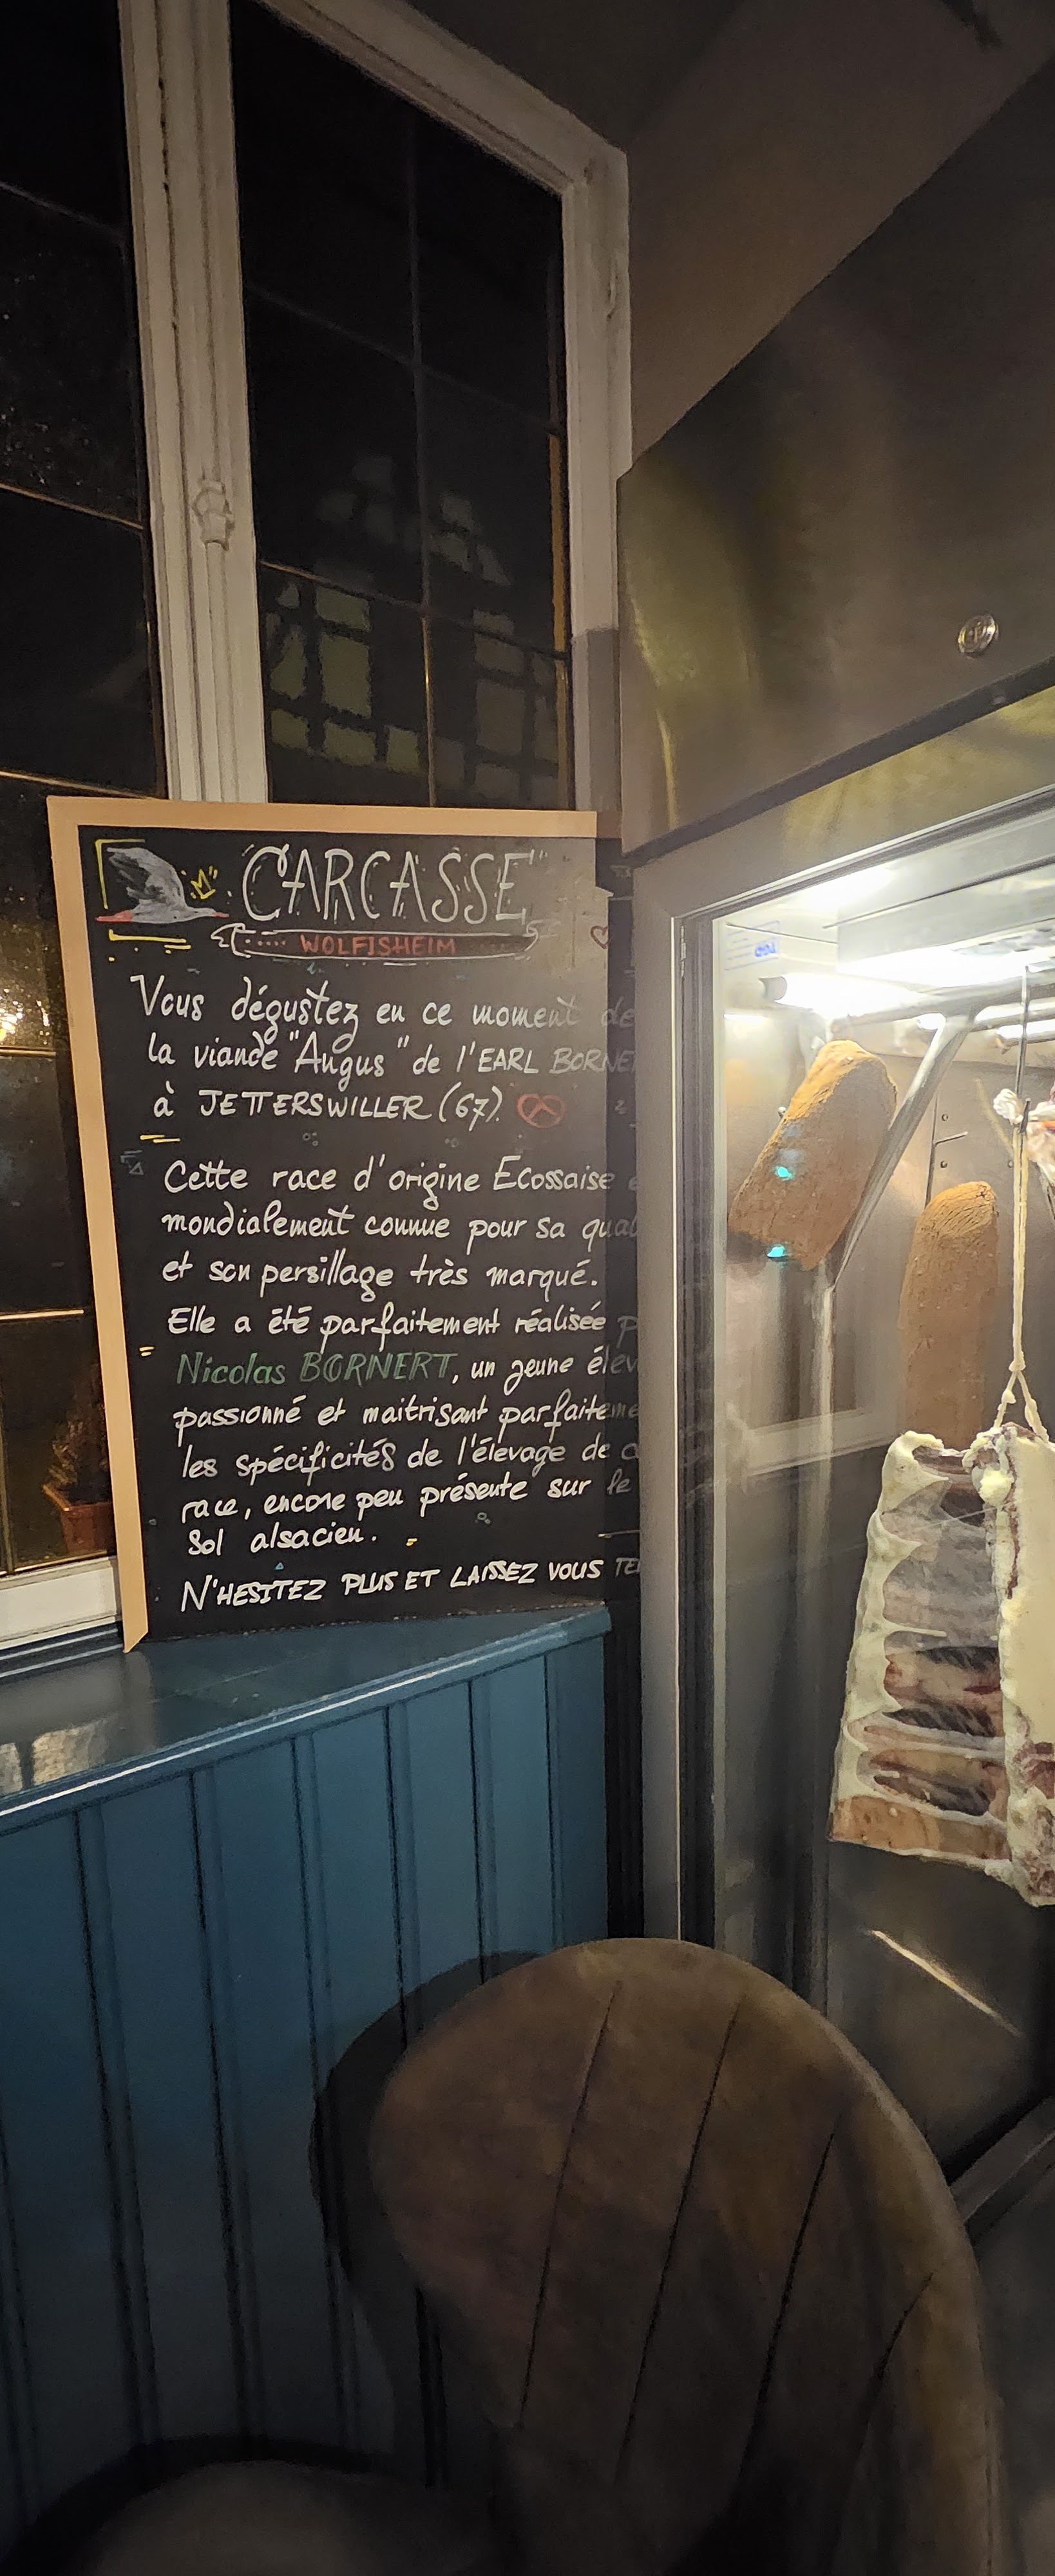 CARCASSE
WOLFISHEIM
Vous dégustez en ce moment de
la viande "Angus" de l'EARL BORNE
à JETTERSWILLER (67).
Cette race d'origine Ecossaise
mondialement connue pour sa qual
et son persillage très marqué.
Elle a été parfaitement réalisée p
Nicolas BORNERT, un jeune élev
passionné et maitrisant parfaiteme
les spécificités de l'élevage de c
race, encore peu présente sur le
Sol alsacien.
N'HESITEZ PLUS ET LAISSEZ VOUS TE